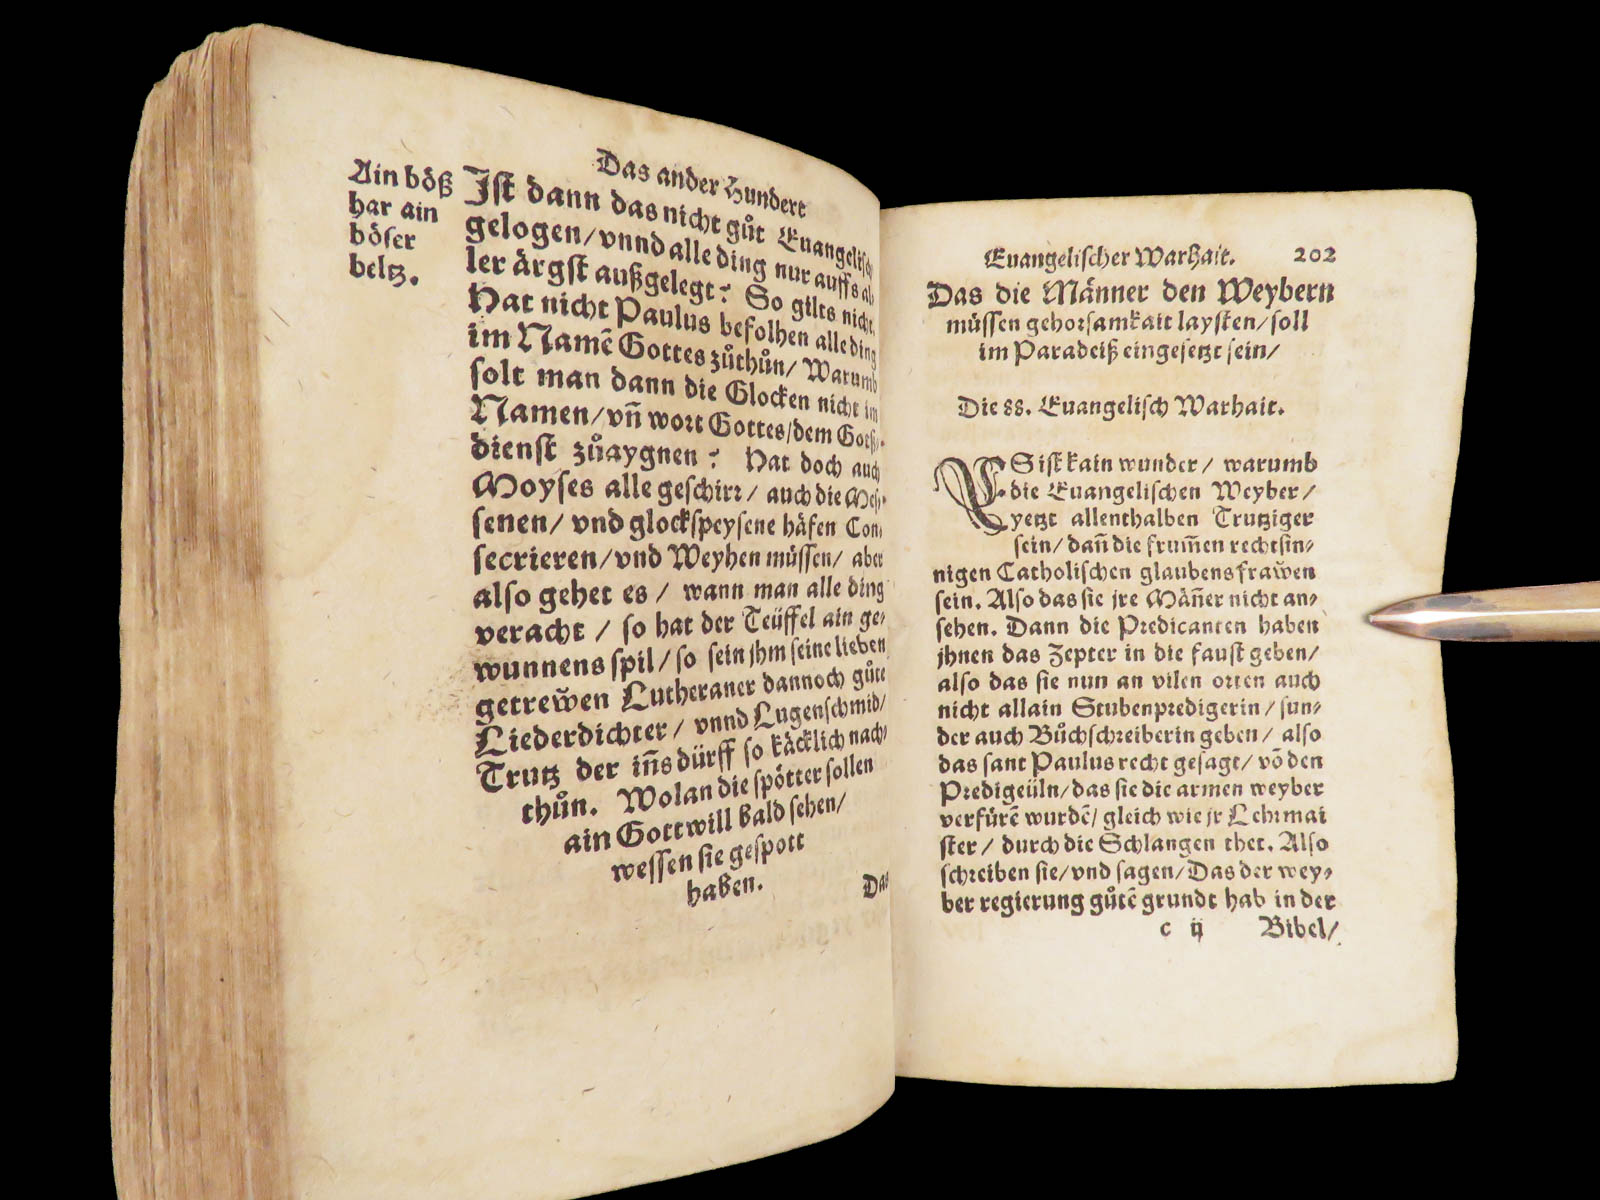 Das ander Hundert
Ain böß
har ain
böser
beltz.
Ist dann das nicht gůt Euangelisch
gelogen/vnnd alle ding nur auffs al-
ler ärgst außgelegt? So gilts nicht.
Hat nicht Paulus befolhen alle ding
im Namē Gottes zůthůn/ Warumb
solt man dann die Glocken nicht im
Namen/vñ wort Gottes/dem Gotß-
dienst zůaygnen? Hat doch auch
Moyses alle geschirr/ auch die Mes-
senen/ vnd glockspeysene häfen Con-
secrieren/vnd Weyhen müssen/ aber
also gehet es/ wann man alle ding
veracht/ so hat der Teüffel ain ge-
wunnens spil/so sein jhm seine lieben
getrewen Lutheraner dannoch gůte
Liederdichter/ vnnd Lugenschmid/
Trutz der iñs dürff so käcklich nach-
thůn. Wolan die spötter sollen
ain Gott will bald sehen/
wessen sie gespott
haben.
Das
Euangelischer Warhait. 202
Das die Männer den Weybern
müssen gehorsamkait laysten/soll
im Paradeiß eingesetzt sein/
Die 88. Euangelisch Warhait.
ES ist kain wunder/ warumb
die Euangelischen Weyber/
yetzt allenthalben Trutziger
sein/ dañ die frum̃en rechtsin-
nigen Catholischen glaubens frawen
sein. Also das sie jre Mäñer nicht an-
sehen. Dann die Predicanten haben
jhnen das Zepter in die faust geben/
also das sie nun an vilen orten auch
nicht allain Stubenpredigerin/sun-
der auch Bůchschreiberin geben/ also
das sant Paulus recht gesagt/ vō den
Predigeüln/das sie die armen weyber
verfürē wurdē/ gleich wie jr Lehrmai
ster/ durch die Schlangen thet. Also
schreiben sie/vnd sagen/Das der wey-
ber regierung gůtē grundt hab in der
c ij Bibel/